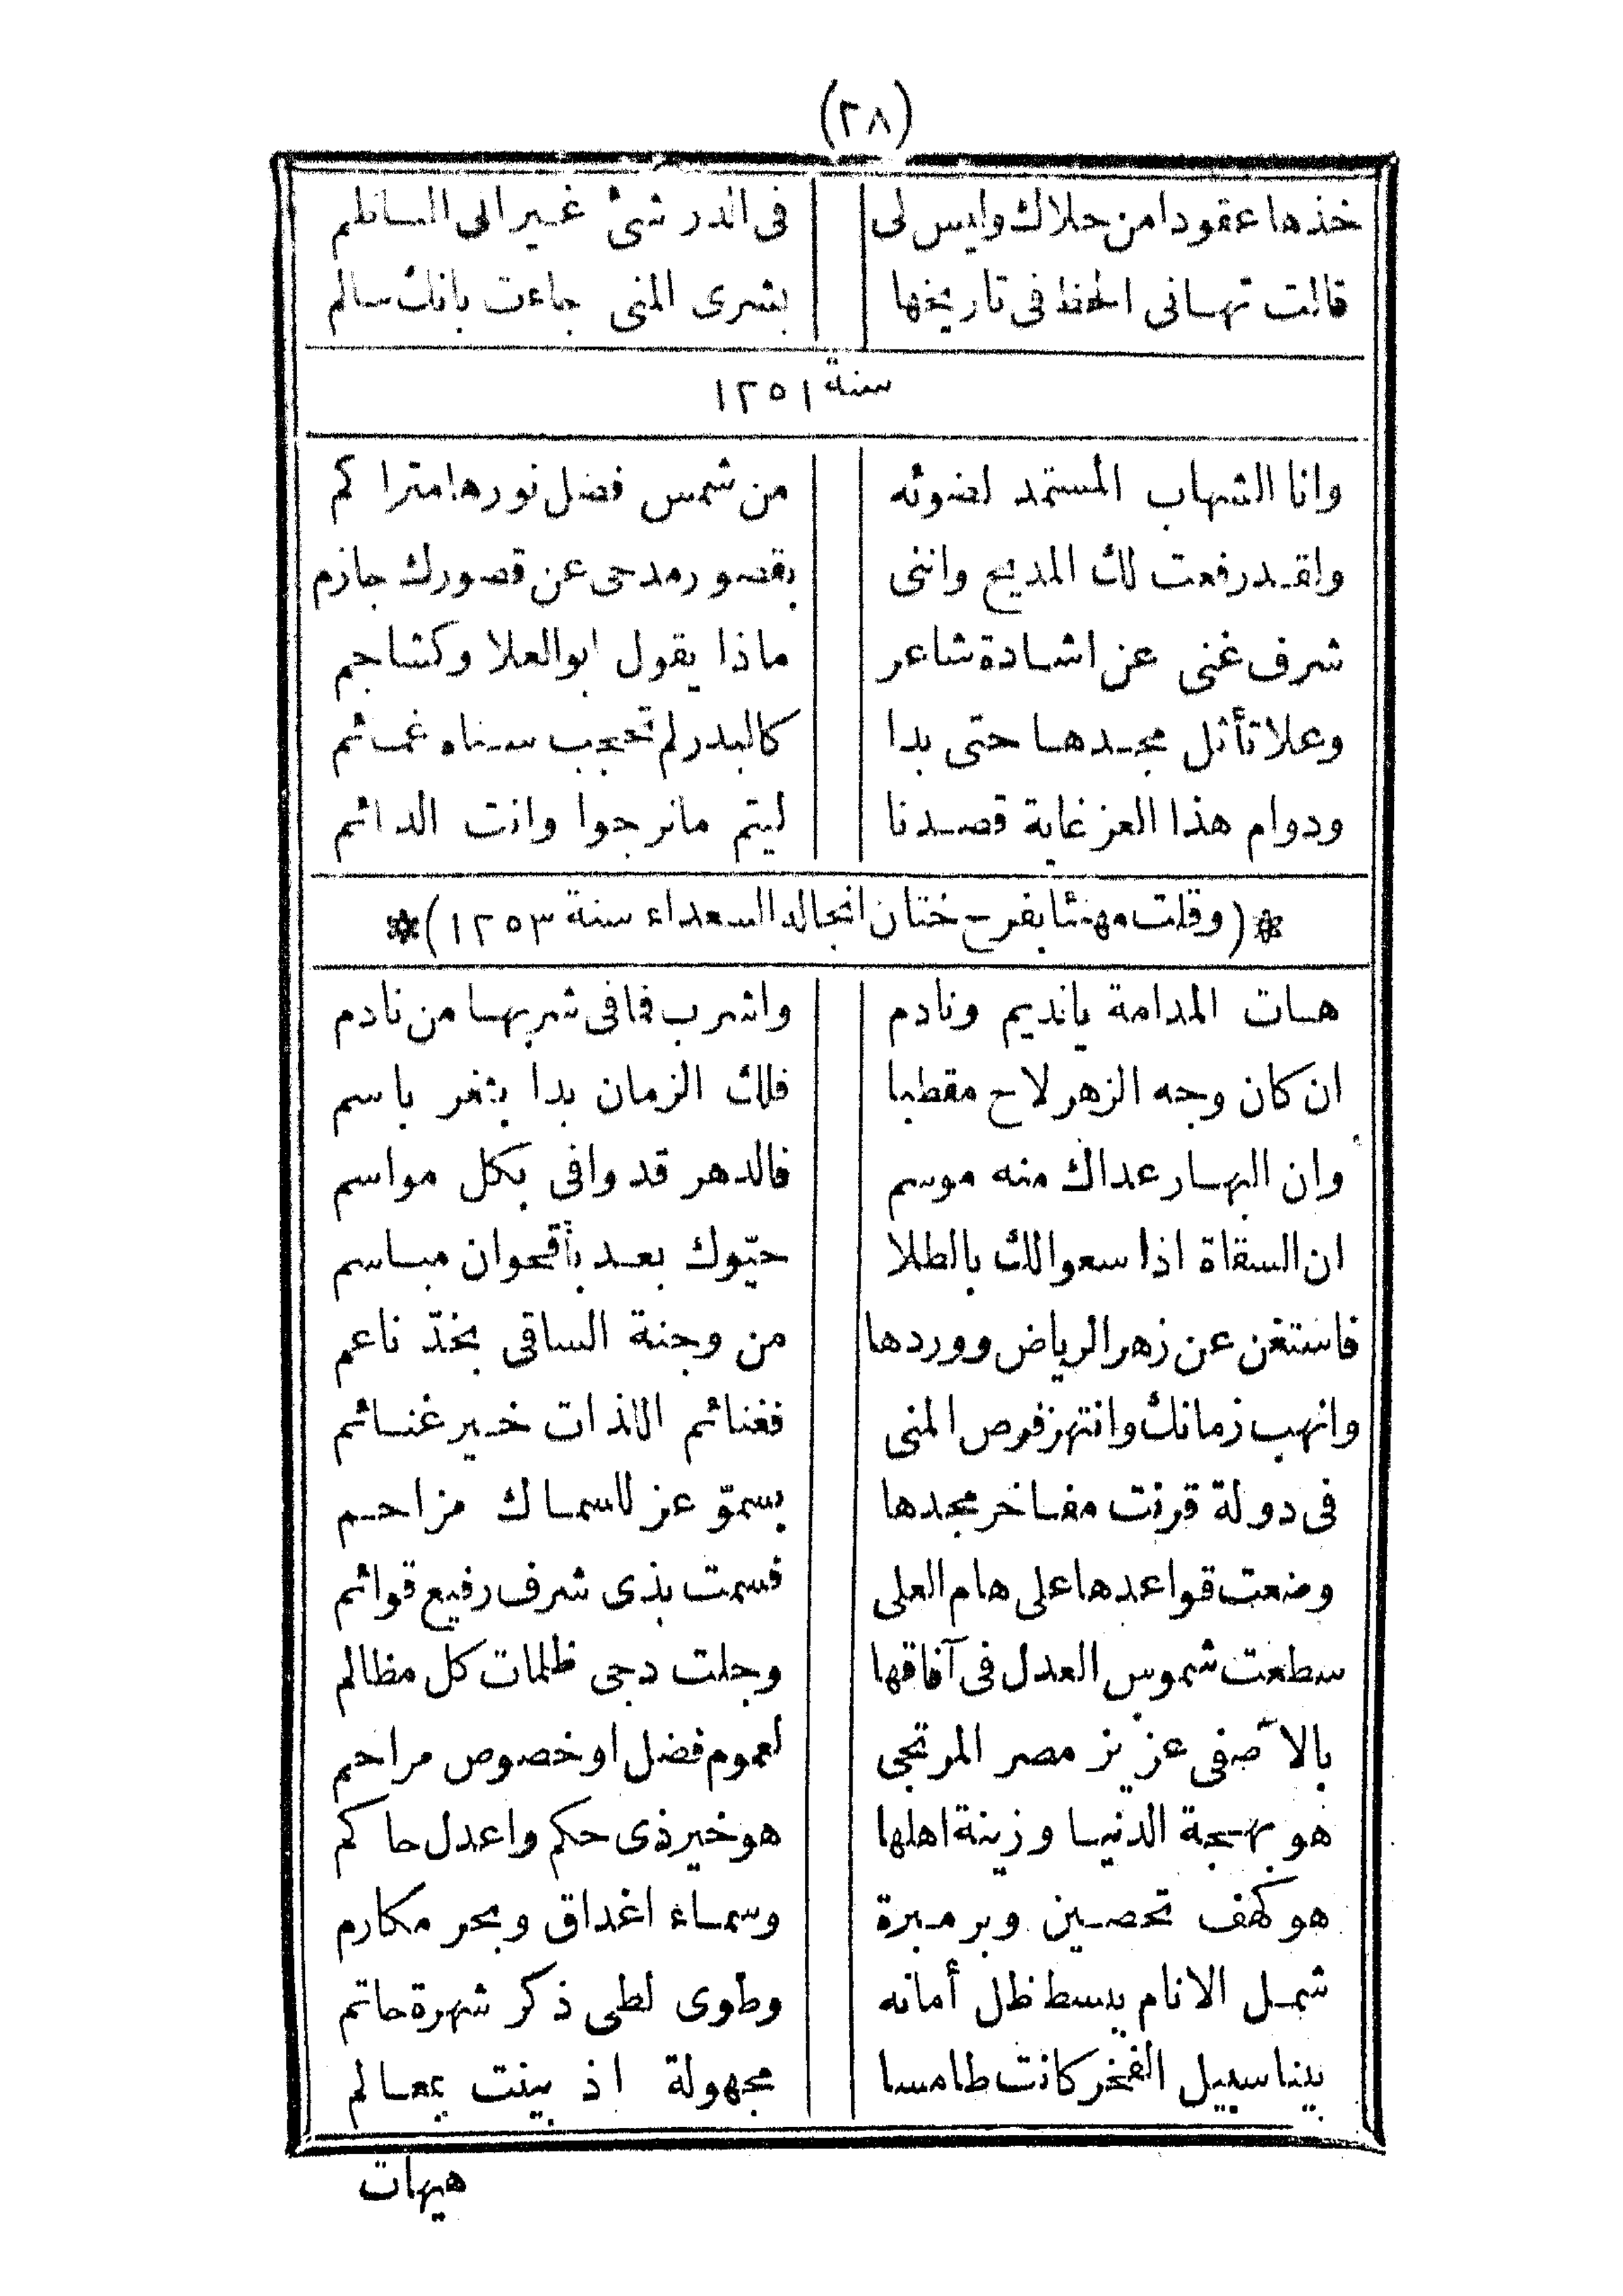 (٢٨)
خذها عقودا من حلاك وليس لى في الدر شئ غير انى الناظم
قالت تهانى الحفظ فى تاريخها بشرى المنى جاءت بانك سالم
سنة ١٢٥١
وانا الشهاب المستمد لضوئه من شمس فضل نورها متراكم
ولقد رفعت لك المديح واننى بقصور مدحى عن قصورك جازم
شرف غنى عن اشادة شاعر ماذا يقول ابو العلا وكشاجم
وعلا تأثل مجدها حتى بدا كالبدر لم تحجب سناه غمائم
ودوام هذا العز غاية قصدنا ليتم مانرجوا وانت الدائم
❊ (وقلت مهنئا بفرح ختان انجاله السعداء سنة ١٢٥٣) ❊
هات المدامة يانديم ونادم واشرب فما فى شربها من نادم
ان كان وجه الزهر لاح مقطبا فلك الزمان بدا بثغر باسم
وان البهار عداك منه موسم فالدهر قد وافى بكل مواسم
ان السقاة اذا سعوا لك بالطلا حيّوك بعد بأقحوان مباسم
فاستغن عن زهر الرياض ووردها من وجنة الساقى بخدّ ناعم
وانهب زمانك وانتهز فرص المنى فغنائم اللذات خير غنائم
فى دولة قرنت مفاخر مجدها بسموّ عز للسماك مزاحم
وضعت قواعدها على هام العلى فسمت بذى شرف رفيع قوائم
سطعت شموس العدل فى آفاقها وجلت دجى ظلمات كل مظالم
بالآصفى عزيز مصر المرتجى لعموم فضل او خصوص مراحم
هو بهجة الدنيا وزينة اهلها هو خير ذى حكم واعدل حاكم
هو كهف تحصين وبر مبرة وسماء اغداق وبحر مكارم
شمل الانام ببسط ظل أمانه وطوى لطى ذكر شهرة حاتم
بينا سبيل الفخر كانت طامسا مجهولة اذ بينت بمعالم
هيهات